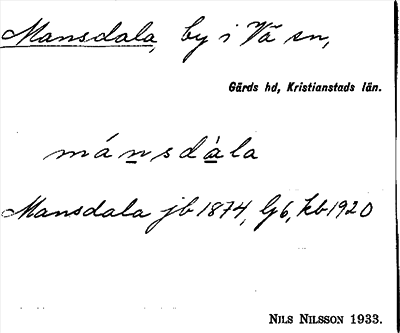 Mansdala, by i Vä sn,
Gärds hd, Kristianstads län.
mánsdàla
Mansdala jb 1874, lj6, kb 1920
NILS NILSSON 1933.